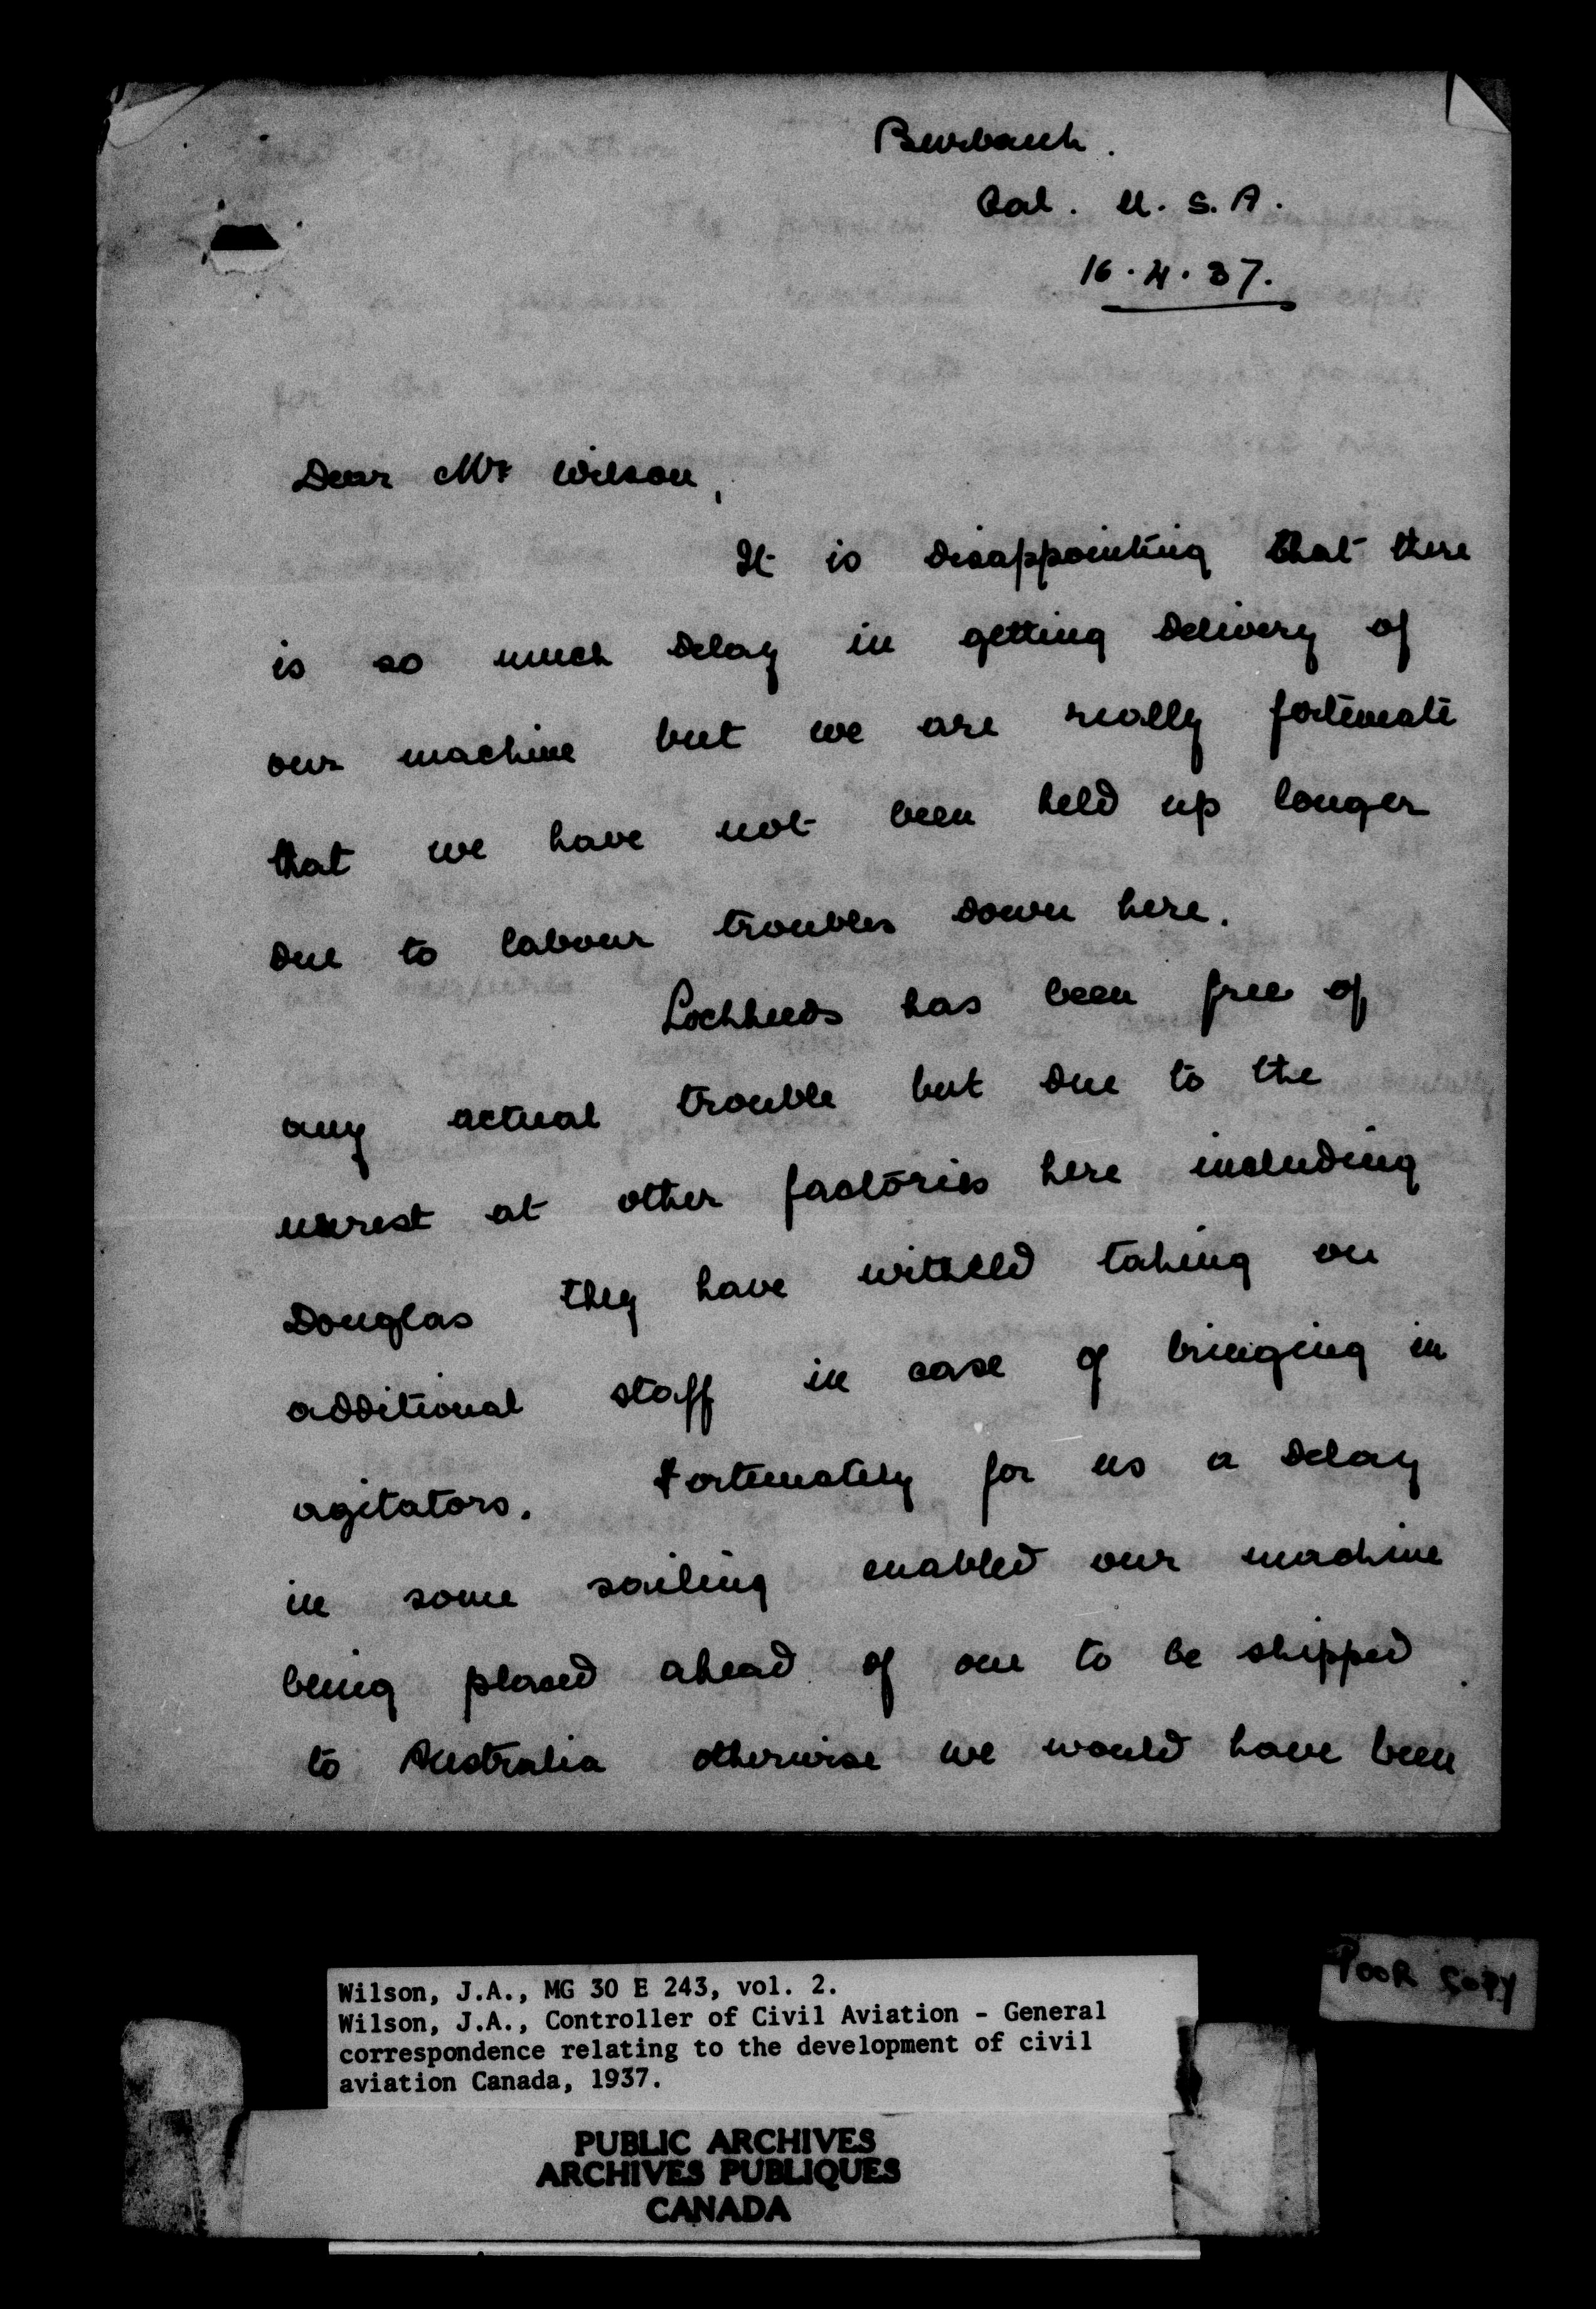 Burbank.
Cal. U.S.A.
16.4.37.
Dear Mr Wilson,
It is disappointing that there
is so much delay in getting delivery of
our machine but we are really fortunate
that we have not been held up longer
due to labour troubles down here.
Lockheeds has been free of
any actual trouble but due to the
unrest at other factories here including
Douglas they have witheld taking on
additional staff in case of bringing in
agitators. Fortunately for us a delay
in some sailing enabled our machine
being placed ahead of one to be shipped
to Australia otherwise we would have been
POOR COPY
Wilson, J.A., MG 30 E 243, vol. 2.
Wilson, J.A., Controller of Civil Aviation - General
correspondence relating to the development of civil
aviation Canada, 1937.
PUBLIC ARCHIVES
ARCHIVES PUBLIQUES
CANADA